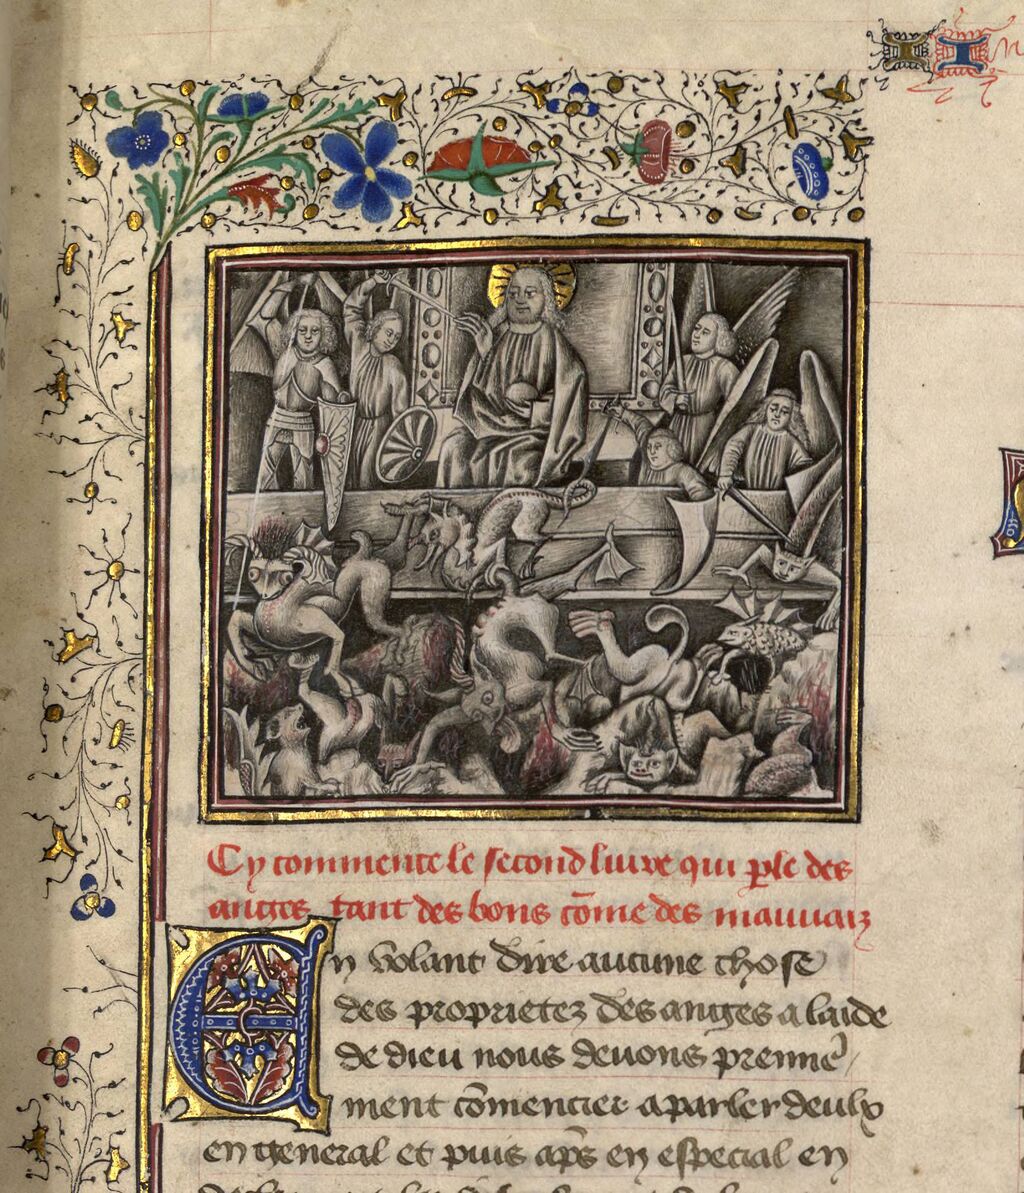 Cy commence le second livre qui ple des
anges tant des bons cõme des mauvaiz
En volant dire aucune chose
des proprietez des anges a laide
de dieu nous devons premie
ment cõmencier a parler deulx
en general et puis aps en especial en